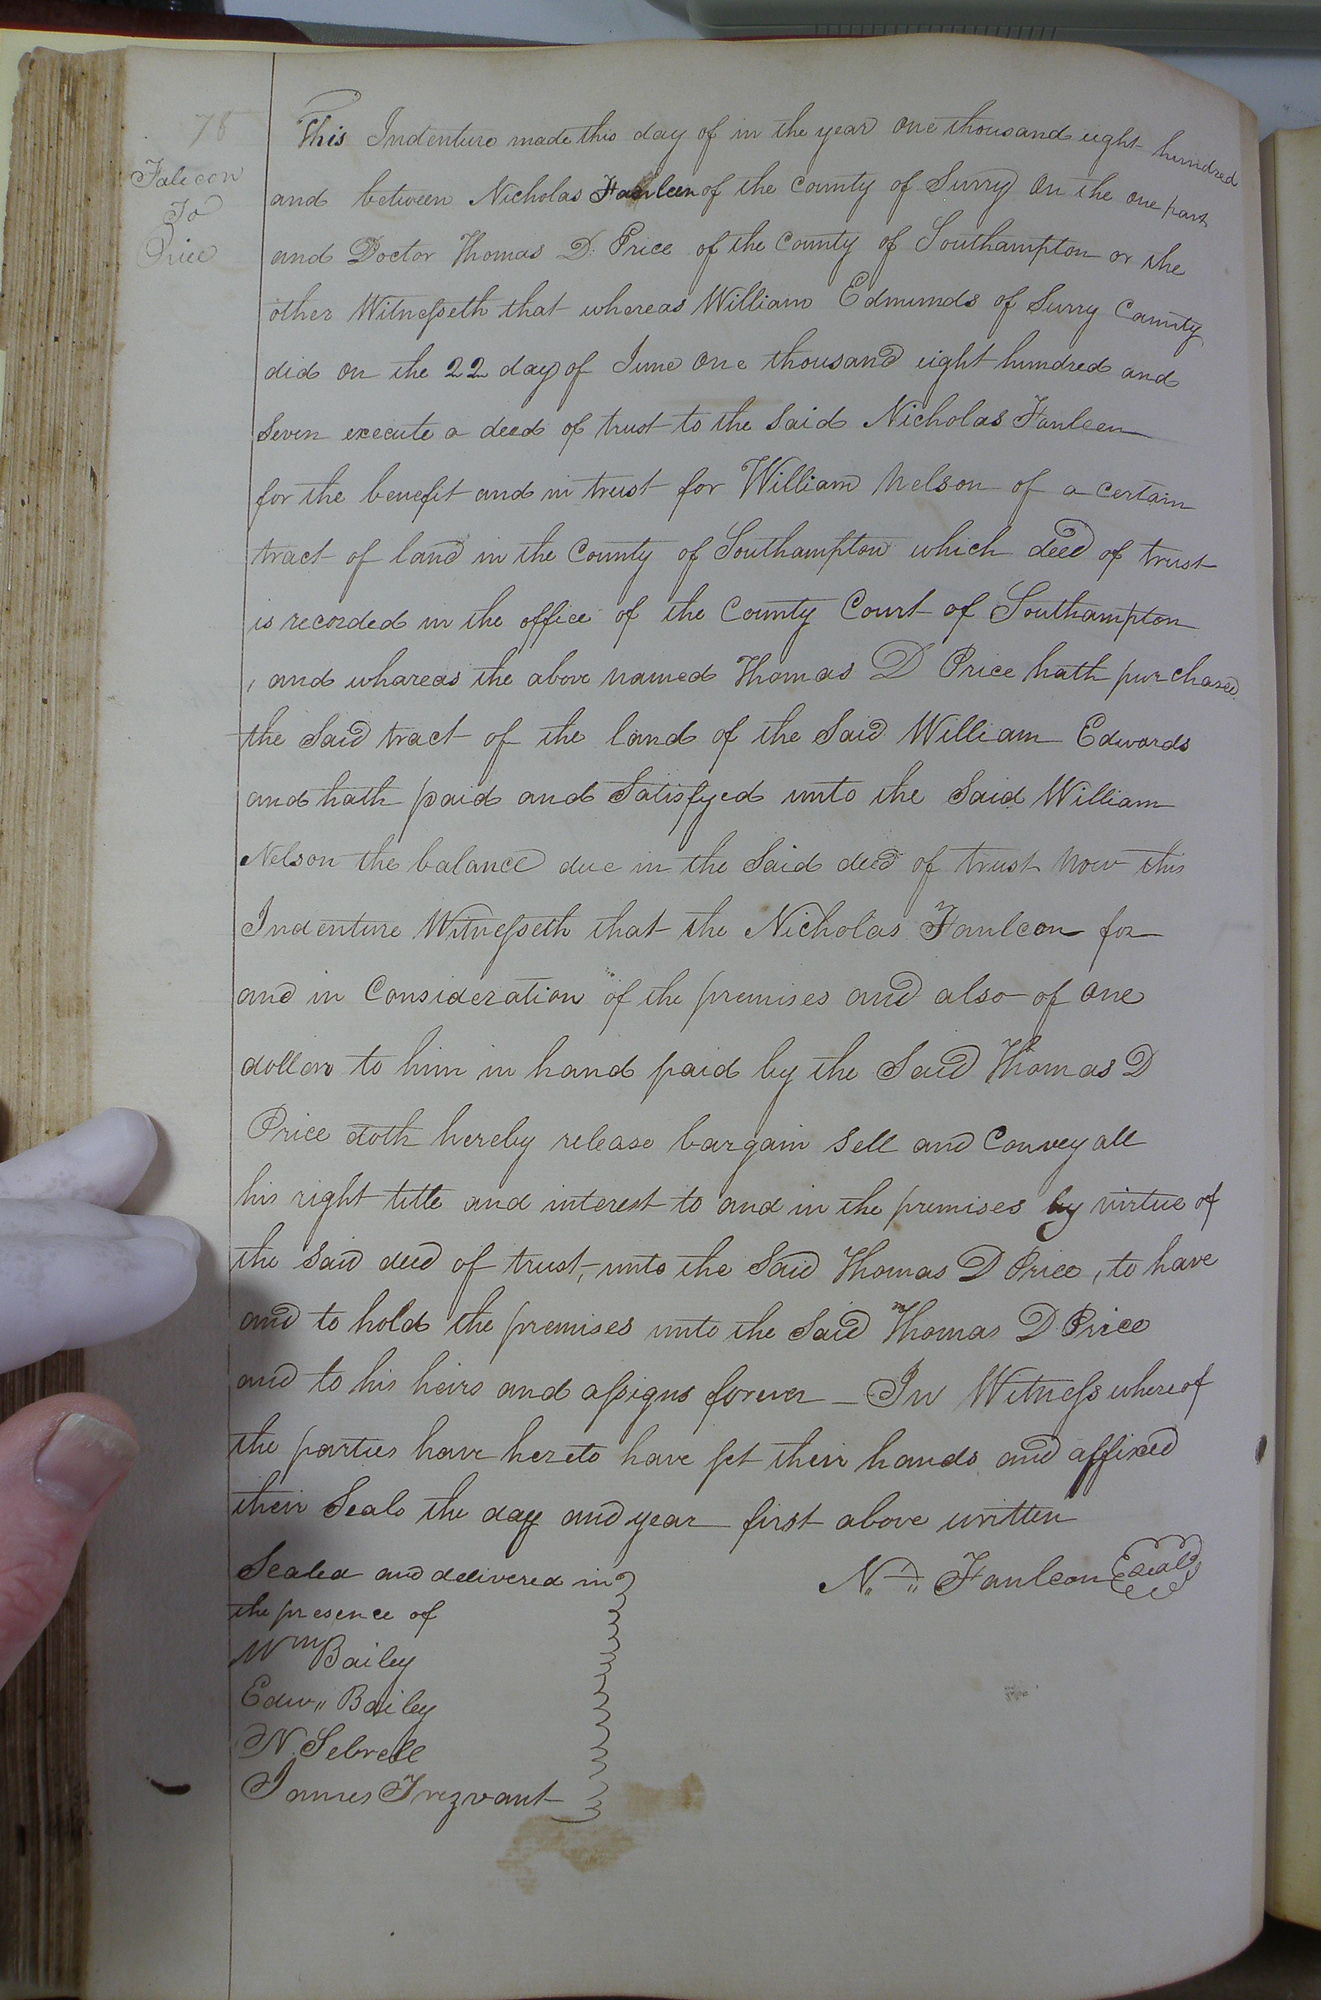 78
Falicon
To
Price
This Indenture made this day of in the year One thousand eight hundred
and between Nicholas Faulcon of the County of Surry On the one part
and Doctor Thomas D. Price of the County of Southampton or the
other Witnesseth that whereas William Edmunds of Surry County
did on the 22 day of June One thousand eight hundred and
Seven execute a deed of trust to the Said Nicholas Faulcon
for the benefit and in trust for William Nelson of a certain
tract of land in the County of Southampton which deed of trust
is recorded in the office of the County Court of Southampton
, and whareas the above named Thomas D Price hath purchased
the Said tract of the land of the Said William Edwards
and hath paid and Satisfyed unto the Said William
Nelson the balance due in the Said deed of trust Now this
Indenture Witnesseth that the Nicholas Faulcon for
and in Consideration of the premises and also of one
dollar to him in hand paid by the Said Thomas D
Price doth hereby release bargain Sell and Convey all
his right title and interest to and in the premises by virtue of
the Said deed of trust, unto the Said Thomas D Price, to have
and to hold the premises unto the Said Thomas D. Price
and to his heirs and assigns forever — In Witness whereof
the parties have hereto have set their hands and affixed
their Seals the day and year first above written
Sealed and delivered in
the presence of
N. Faulcon Seal
Wm Bailey
Edw,, Bailey
N. Sebrell
James Trezvant